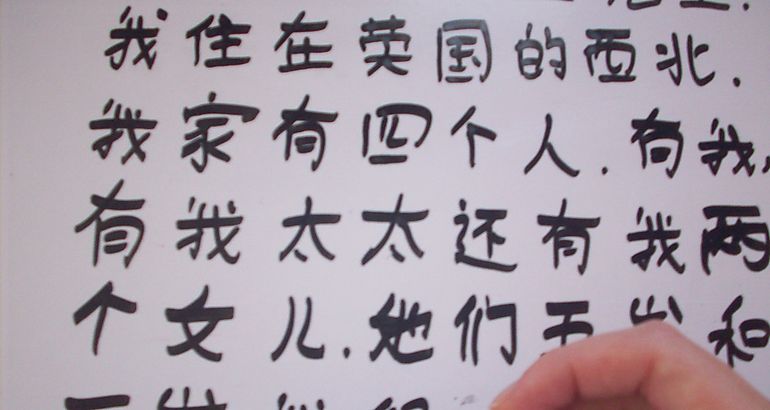 我住在英国的西北.
我家有四个人.有我,
有我太太还有我两
个女儿.她们五岁和